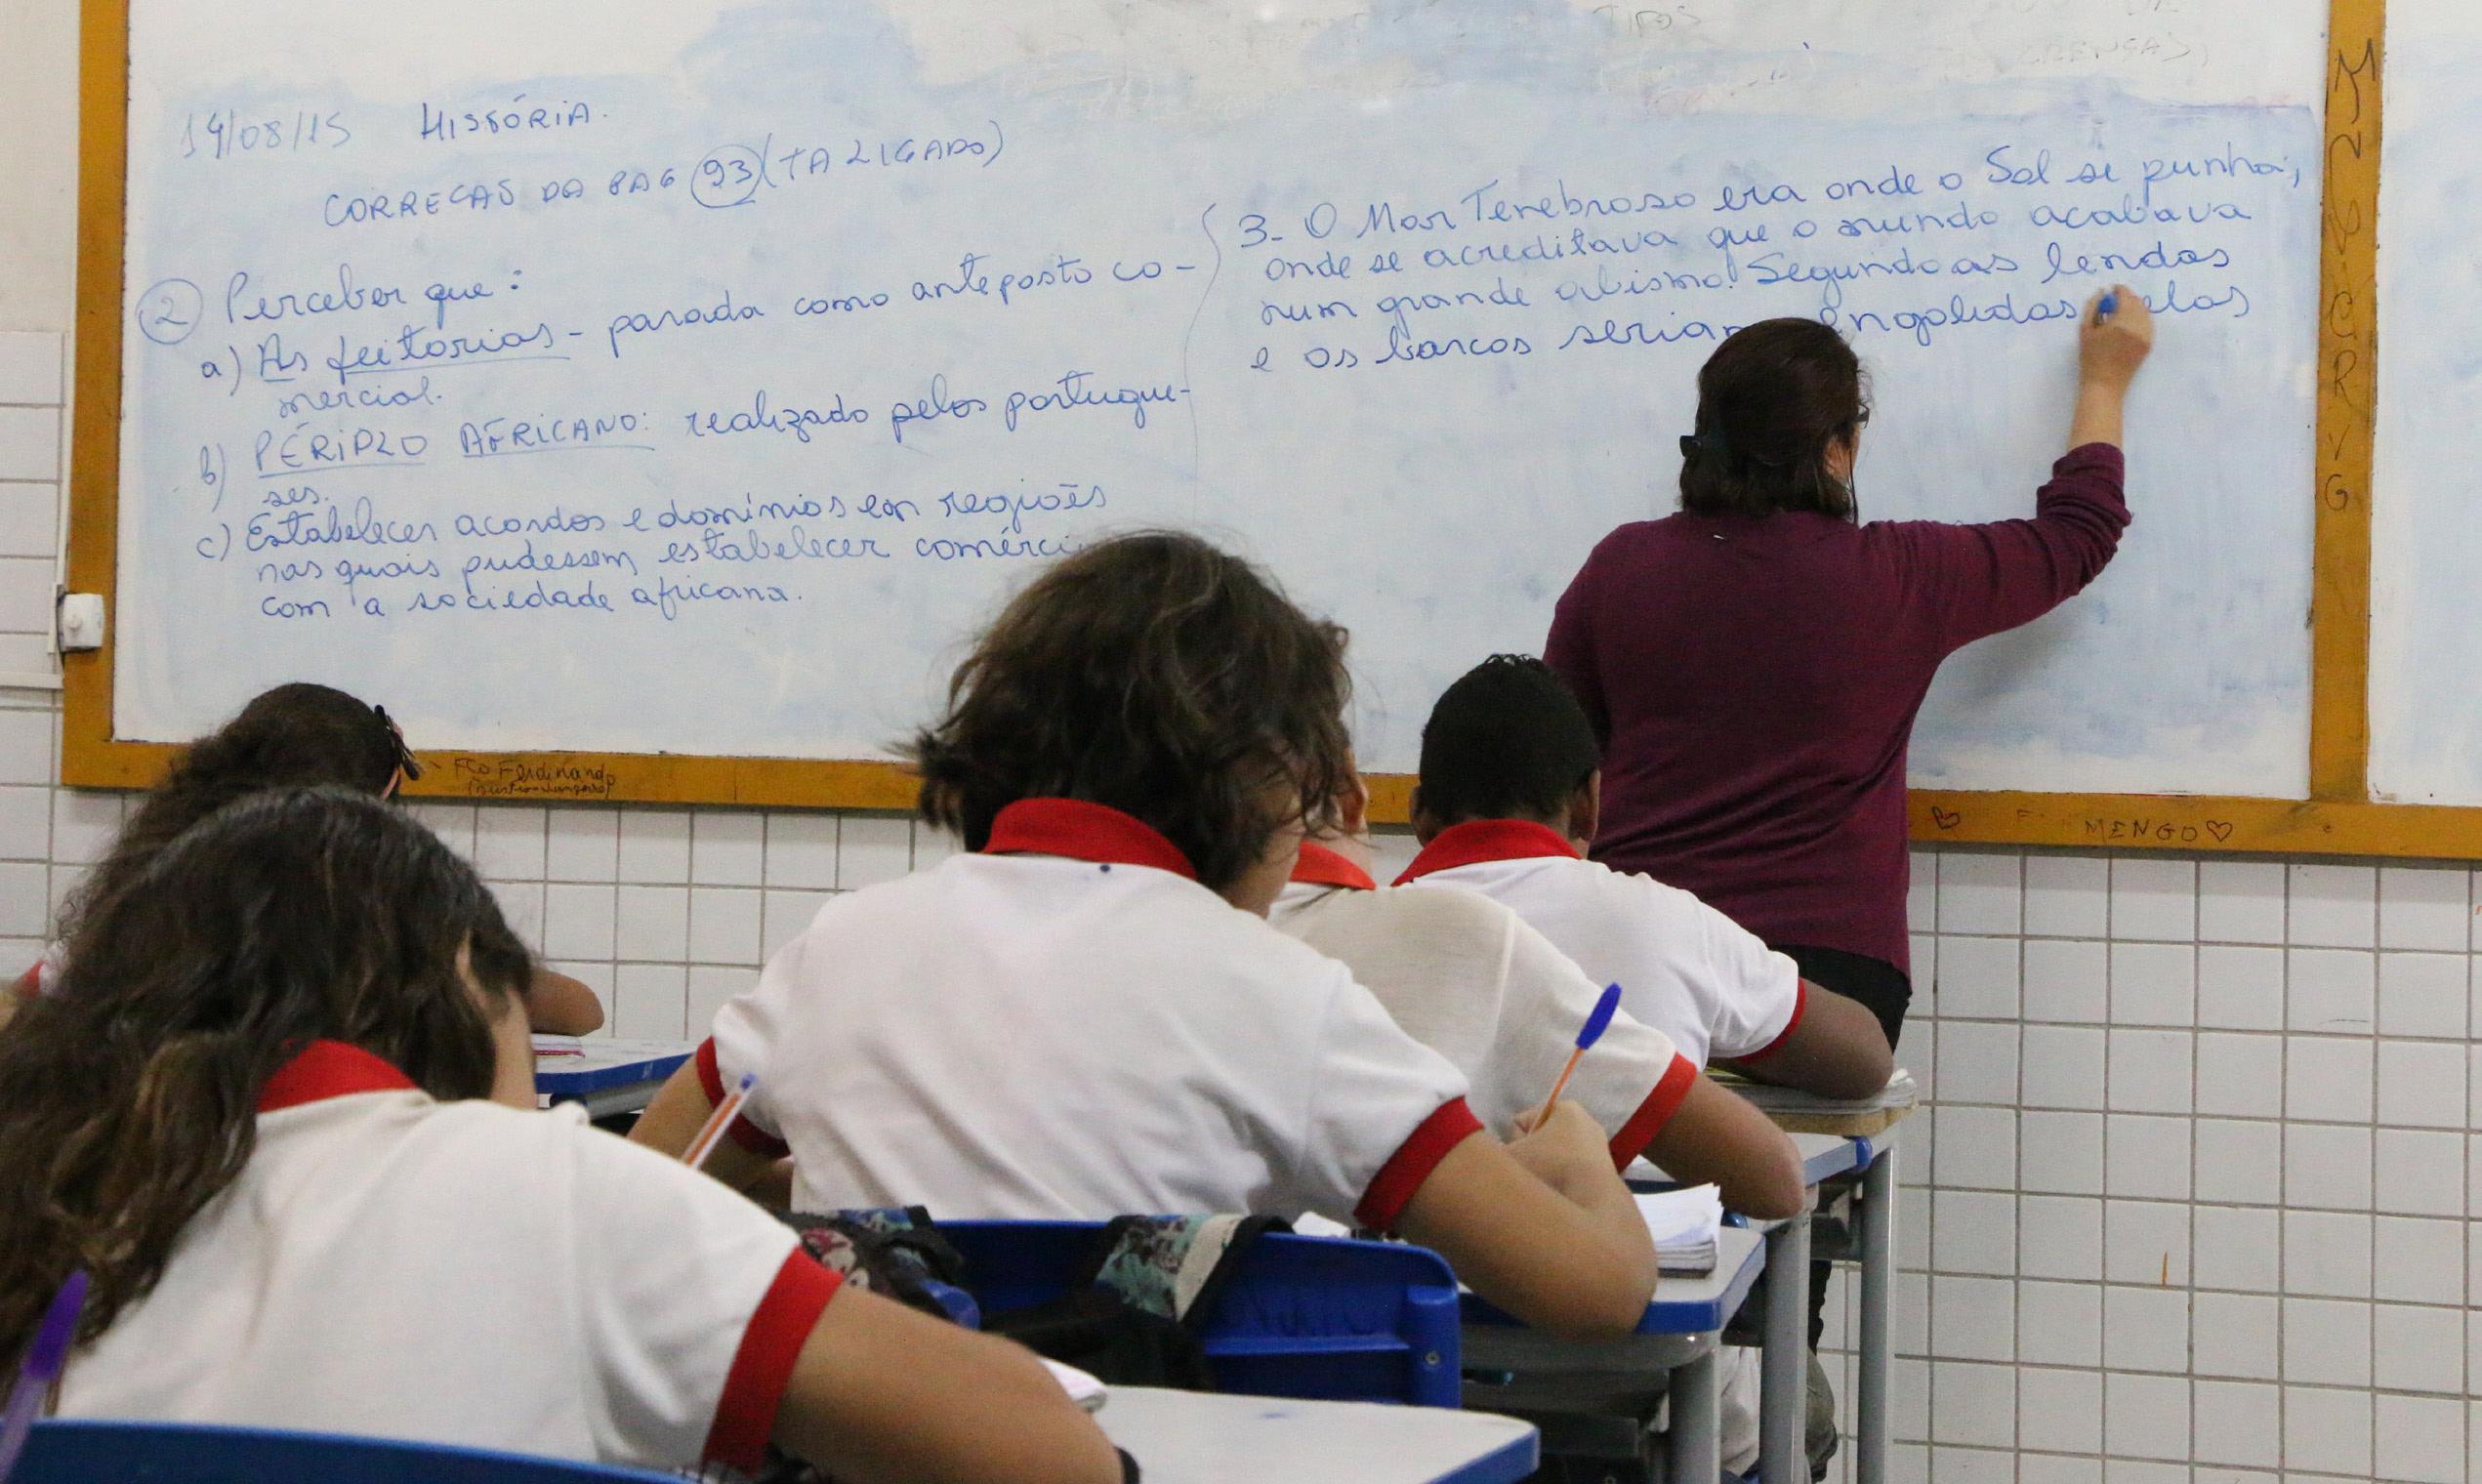 14/08/15 HISTÓRIA.
CORREÇAS DA PAG 93 (TA LIGADO)
2 Perceber que:
a) As feitorias - parada como anteposto co-
mercial.
b) PÉRIPLO AFRICANO: realizado pelos portugue-
ses.
c) Estabelecer acordos e domínios em regiões
nas quais pudessem estabelecer comérci
com a sociedade africana.
3- O Mar Tenebroso era onde o Sol se punha;
onde se acreditava que o mundo acabava
num grande abismo! Segundo as lendas
e os barcos seriam engolidos pelos
TIPOS
CRENÇAS,
Fco Ferdinando
MENGO